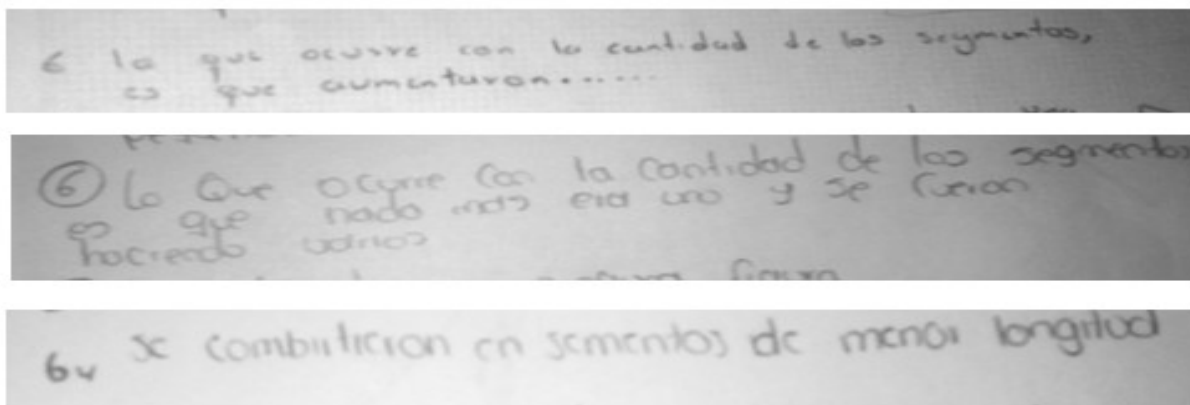 6 lo que ocurre con la cantidad de los segmentos,
es que aumentaron......
⑥ lo Que ocurre con la Cantidad de los segmentos
es que nada mas era uno y se fueron
haciendo varios
6✓ se combirtieron en sementos de menor longitud